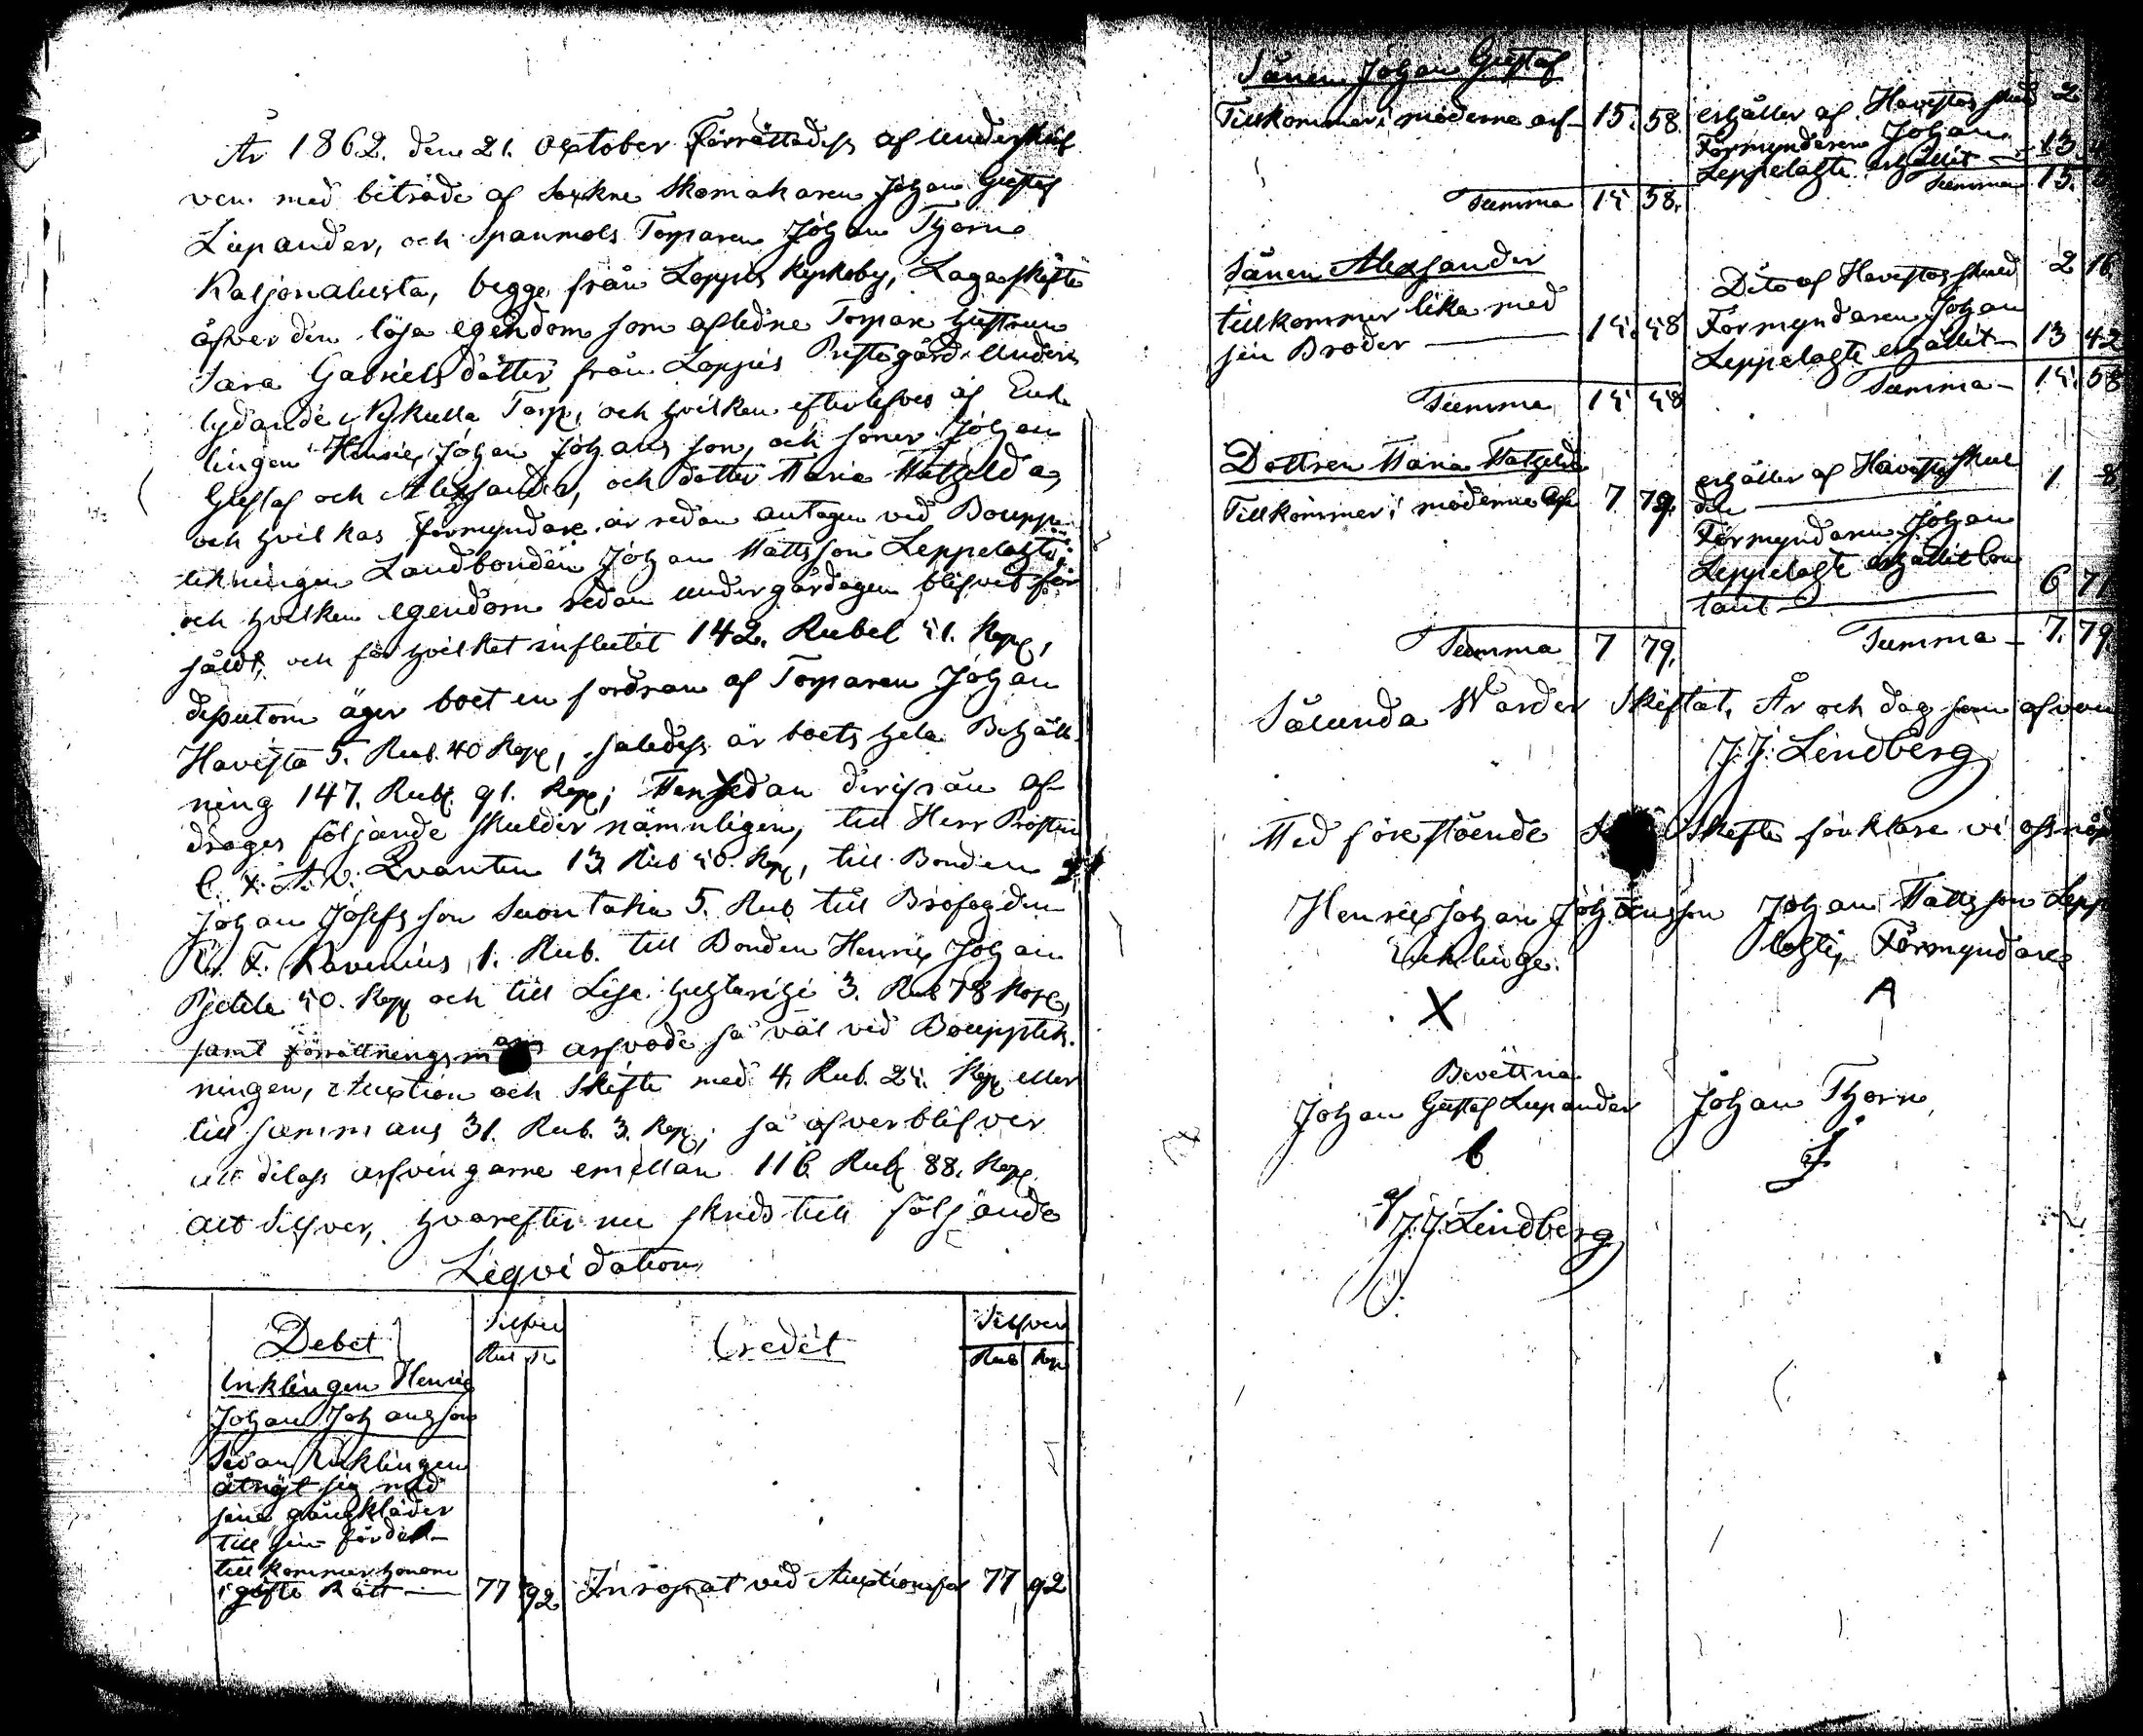 År 1862. den 21. October Förrättades af Underskrif
ven med biträde af Sockne Skomakaren Johan Gustaf
Lupander, och Spanmols Torparen Johan Thorn
Kaljonalusta, begge från Loppis Kyrkoby, Laga skifte
öfver den lösa egendom som aflidne Torpare hustrun
Sara Gabrielsdotter från Loppis Prestegårds Under
lydande Nykulla Torp, och hvilken efterlefves af Enk
lingen Henric Johan Johansson, och söner Johan
Gustaf och Alexander, och dotter Maria Matzelda,
och hvilkas förmyndare är redan antagen vid Bouppe
tekningen Landbonden Johan Mattsson Leppelagti;
och hvilken egendom redan undergårdagen blifvet för
såldt, och för hvilket influtit 142. Rubel 51. Kop,
desutom äger boet en fordran af Torparen Johan
Havista 5. Rub. 40 Kop, saledes är boets hela Behåll
ning 147. Rub. 91. Kop; Men sedan derifrån af
drages följande skulder nämnligen, till Herr Prosten
C. F. A. v: Qvanten 13 Rub 50. Kop, till Bonden
Johan Josefsson Suontaka 5. Rub. till Brofogden
K. F. Ravenius 1. Rub. till Bonden Henric Johan
Pjetila 50. Kop och till Lisa 3. Rub 78 Kop,
samt förrättningsm arfvode så väl vid Bouppteck
ningen, Auction och Skifte med 4. Rub. 25. Kop eller
till sammans 31. Rub. 3. Kop; så öfverblifver
att delas arfvingarne emellan 116 Rub 88. Kop.
allt Silfver, hvarefter nu skreds till följande
Liqvidation
Debet Silfver Credit Silfver
Rub K Rub Kop
Enklingen Henric
Johan Johansson
Sedan Enklingen
åtnöjt sig med
sina gångkläder
till sin fördel
tillkommer honom
i gifto Rätt — 77 92 Inropat vid Auctionen för 77 92
Sånen Johan Gustaf
Tillkommer i möderne arf — 15. 58. erhåller af Havistos skuld 2
Förmyndaren Johan
Leppelagti erhållit — 13
Summa 15.
Summa 15 58.
Sånen Alexsander
tillkommer lika med
sin Broder — 15. 58
Dito af Havistos skuld 2 16
Förmyndaren Johan
Leppelagti erhållit — 13 42
Summa — 15. 58
Summa 15 58
Dottren Maria Matzelda
Tillkommer i möderne arf 7 79.
erhåller af Havistos skul
den — 1 8
Förmyndaren Johan
Leppelagti erhållit Con
tant — 6 71
Summa 7 79. Summa — 7. 79.
Sålunda Warder Skiftat, År och dag som ofvan
J. J. Lindberg
Med förestående skifte förklare vi oss nöj
Henric Johan Johansson Johan Mattsson Lepp
Enklinge. lagti, Förmyndare
X A
Bevittna
Johan Gustaf Lupander Johan Thorn
af
J. J. Lindberg